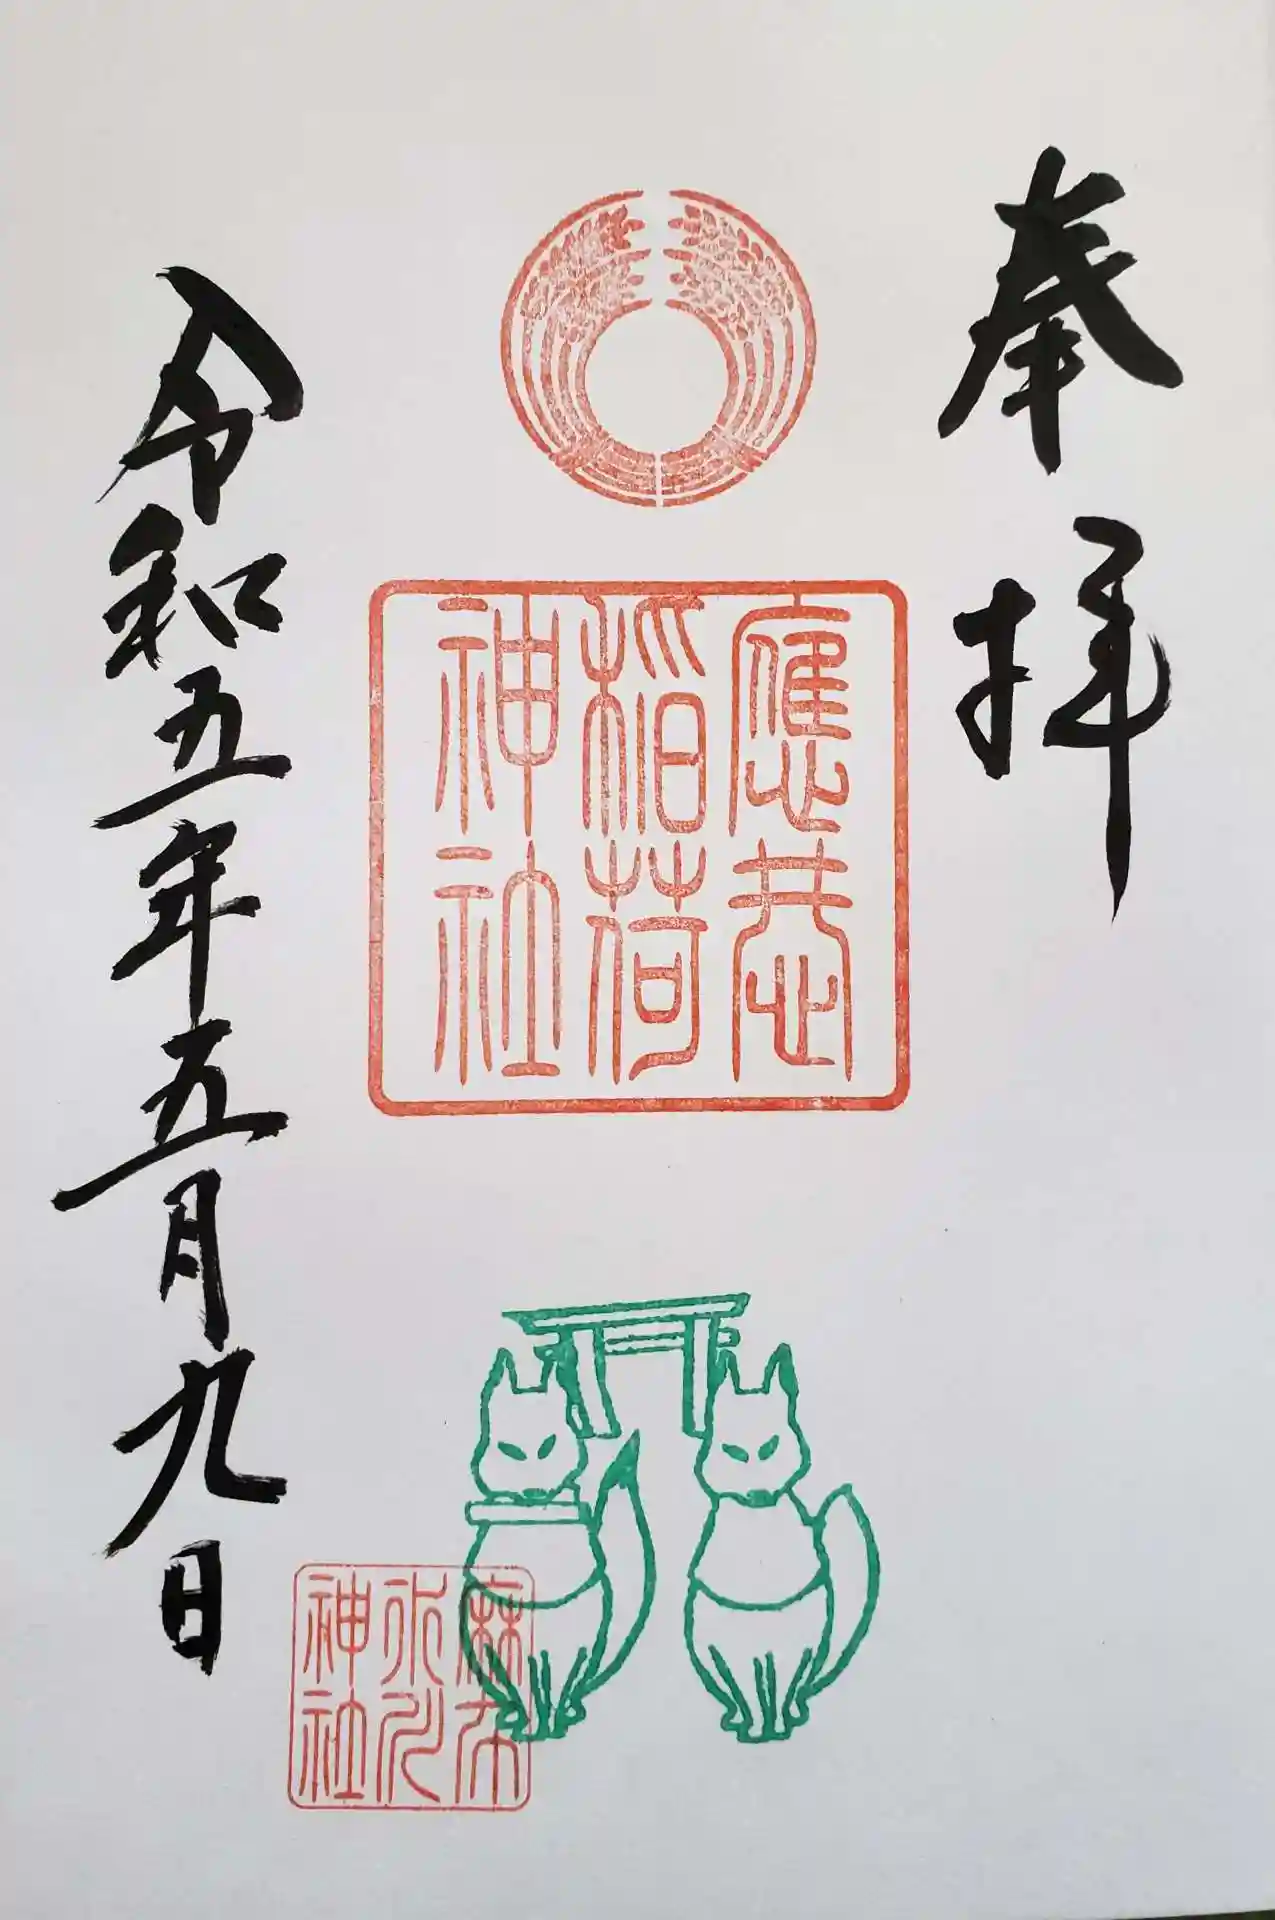 奉拝
應恭
稲荷
神社
令和五年五月九日
麻布
氷川
神社